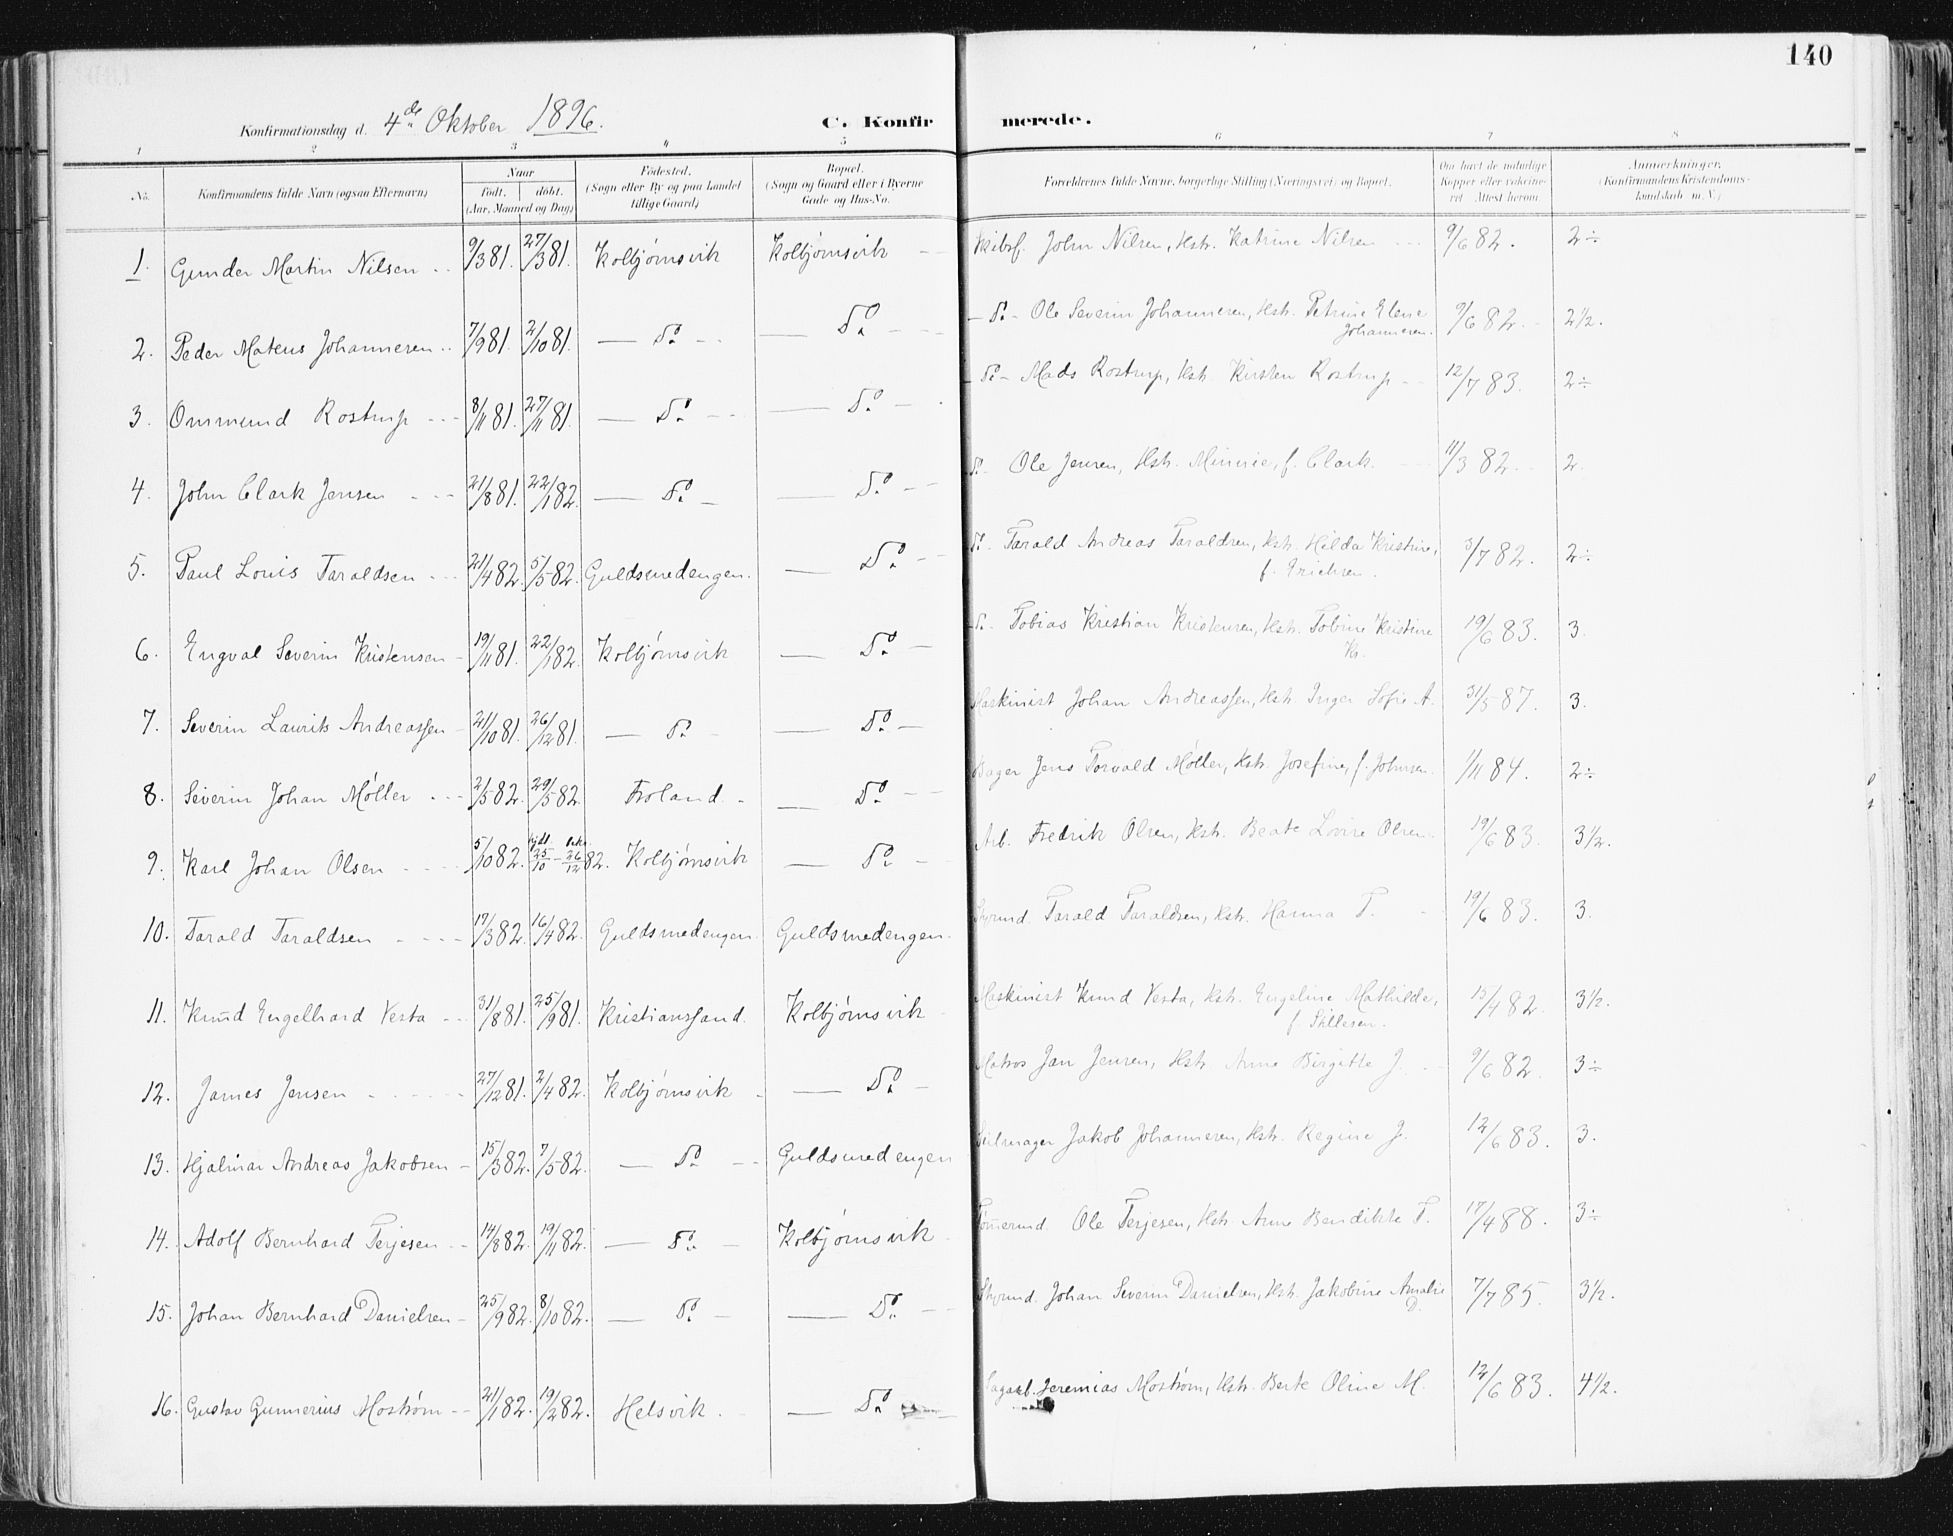 140
Konfirmationsdag d. 4de Oktober 1896. C. Konfir merede.
1 2 3 4 5 6 7 8
No. Konfirmandens fulde Navn (ogsaa Efternavn) Naar født. døbt. (Aar, Maaned og Dag) Fødested. (Sogn eller By og paa Landet tillige Gaard) Bopæl. (Sogn og Gaard eller i Byerne Gade og Hus-No. Forældrenes fulde Navne, borgerlige Stilling (Næringsvei) og Bopæl. Om havt de naturlige Kopper eller vaccineret. Attest herom. Anmærkninger. (Konfirmandens Kristendomskundskab m.V.)
1. Gunder Martin Nilsen 9/3 81. 27/3 81. Kolbjørnsvik Kolbjørnsvik Skibsf. John Nilsen, Hstr. Katrine Nilsen 9/6 82. 2÷
2. Peder Mateus Johannesen 7/9 81. 2/10 81. — Do — — Do — — Do — Ole Severin Johannesen, Hstr. Petrine Elene Johannesen. 9/6 82. 2½.
3. Ommund Rostrup 8/11 81. 27/11 81. — Do — — Do — — Do — Mads Rostrup, Hstr. Kirsten Rostrup 12/7 83. 2÷
4. John Clark Jensen 21/8 81. 22/1 82. — Do — — Do — Do — Ole Jensen, Hstr. Minnie, f. Clark. 11/3 82. 2.
5. Paul Louis Taraldsen 21/4 82. 5/5 82. Guldsmedengen. — Do — Do. Tarald Andreas Taraldsen, Hstr. Hilda Kristine, f. Erichsen. 3/7 82. 2÷
6. Engval Severin Kristensen 19/11 81. 22/1 82. Kolbjørnsvik — Do — Do. Tobias Kristian Kristensen, Hstr. Tobine Kristine Kr. 19/6 83. 3.
7. Severin Laurits Andreassen 21/10 81. 26/12 81. — Do — — Do — Maskinist Johan Andreassen, Hstr. Inger Sofie A. 31/5 87. 3.
8. Severin Johan Møller 2/5 82. 29/5 82. Froland. — Do — Bager Jens Torvald Møller, Hstr. Josefine, f. Johnsen. 1/11 84. 2÷
9. Karl Johan Olsen 5/10 82. 25/10 - 26/12 82. Kolbjørnsvik — Do — Arb. Fredrik Olsen, Hstr. Beate Lovise Olsen 19/6 83. 3½.
10. Tarald Taraldsen 17/3 82. 16/4 82. Guldsmedengen. Guldsmedengen. Styrmd. Tarald Taraldsen, Hstr. Hanna T. 19/6 83. 3.
11. Knud Engelhard Vesta 31/8 81. 25/9 81. Kristianssand. Kolbjørnsvik Maskinist Knud Vesta, Hstr. Engeline Mathilde, f. Stillesen. 15/4 82. 3½.
12. James Jensen 27/12 81. 2/4 82. Kolbjørnsvik — Do — Matros Jan Jensen, Hstr. Anne Birgitte J. 9/6 82. 3÷
13. Hjalmar Andreas Jakobsen 15/3 82. 7/5 82. — Do — Guldsmedengen Seilmager Jakob Johannesen, Hstr. Regine J. 12/6 83. 3.
14. Adolf Bernhard Terjesen 14/8 82. 19/11 82. — Do — Kolbjørnsvik Tømermd. Ole Terjesen, Hstr. Anne Bendikte T. 17/4 88. 3÷
15. Johan Bernhard Danielsen 25/9 82. 8/10 82. — Do — — Do — Styrmd. Johan Severin Danielsen, Hstr. Jakobine Amalie D. 7/7 85. 3½.
16. Gustav Gunnerius Mostrøm 21/1 82. 19/2 82. Helsvik. — Do — Sagarb. Jeremias Mostrøm, Hstr. Berte Oline M. 12/6 83. 4½.